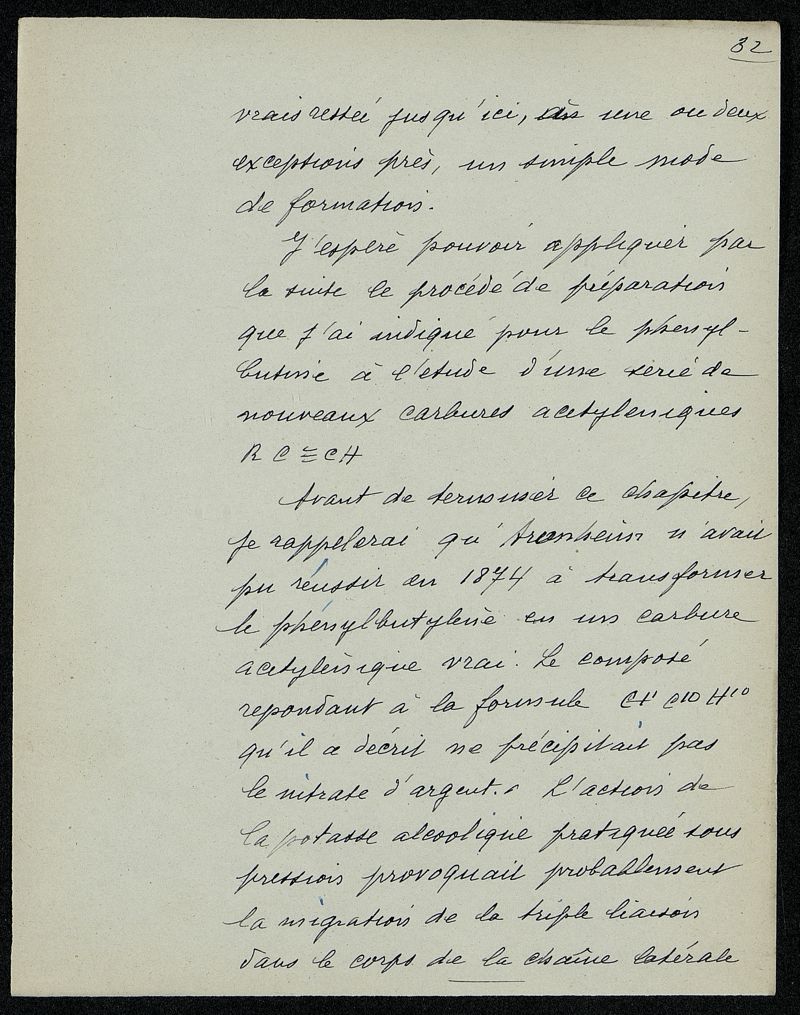 32
vrais resteé jusqu'ici, à une ou deux
exceptions près, un simple mode
de formation.
J'espère pouvoir appliquer par
la suite le procédé de préparation
que j'ai indiqué pour le phenyl-
butine à l'étude d'une serie de
nouveaux carbures acetyleniques
R C ≡ C H
Avant de terminer ce chapitre,
je rappelerai qu'Aronheim n'avait
pu réussir en 1874 à transformer
le phénylbutylène en un carbure
acetylènique vrai. Le composé
repondant à la formule C10 H10
qu'il a décrit ne précipitait pas
le nitrate d'argent. L'action de
la potasse alcoolique pratiquée sous
pression provoquait probablement
la migration de la triple liaison
dans le corps de la chaîne latérale